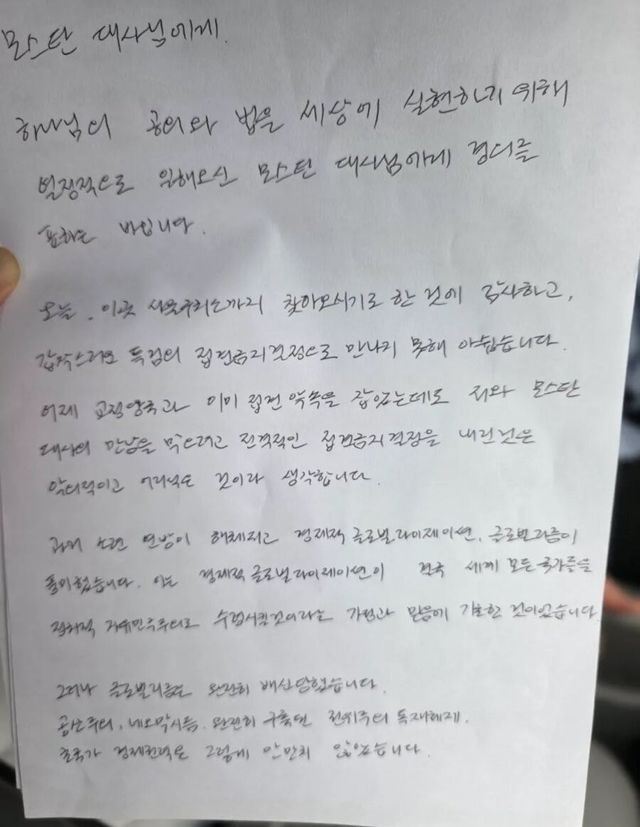 모스탄 대사님에게.
하나님의 공의와 법을 세상에 실현하기 위해
열정적으로 일해오신 모스탄 대사님에게 경의를
표하는 바입니다.
오늘, 이곳 서울구치소까지 찾아오시기로 한 것에 감사하고,
갑작스러운 특검의 접견금지결정으로 만나지 못해 아쉽습니다.
어제 교정당국과 이미 접견 약속을 잡았는데도 저와 모스탄
대사의 만남을 막으려고 전격적인 접견금지결정을 내린것은
악의적이고 어리석은 것이라 생각합니다.
과거 소련 연방이 해체되고 경제적 글로벌라이제이션, 글로벌리즘이
풍미했습니다. 이는 경제적 글로벌라이제이션이 결국 세계 모든 국가들을
정치적 자유민주주의로 수렴시킬것이라는 가정과 믿음에 기초한 것이었습니다.
그러나 글로벌리즘은 완전히 배신당했습니다.
공산주의, 네오막시즘, 완전히 구축된 전체주의 독재체제,
초국가 경제권력은 그렇게 만만치 않았습니다.